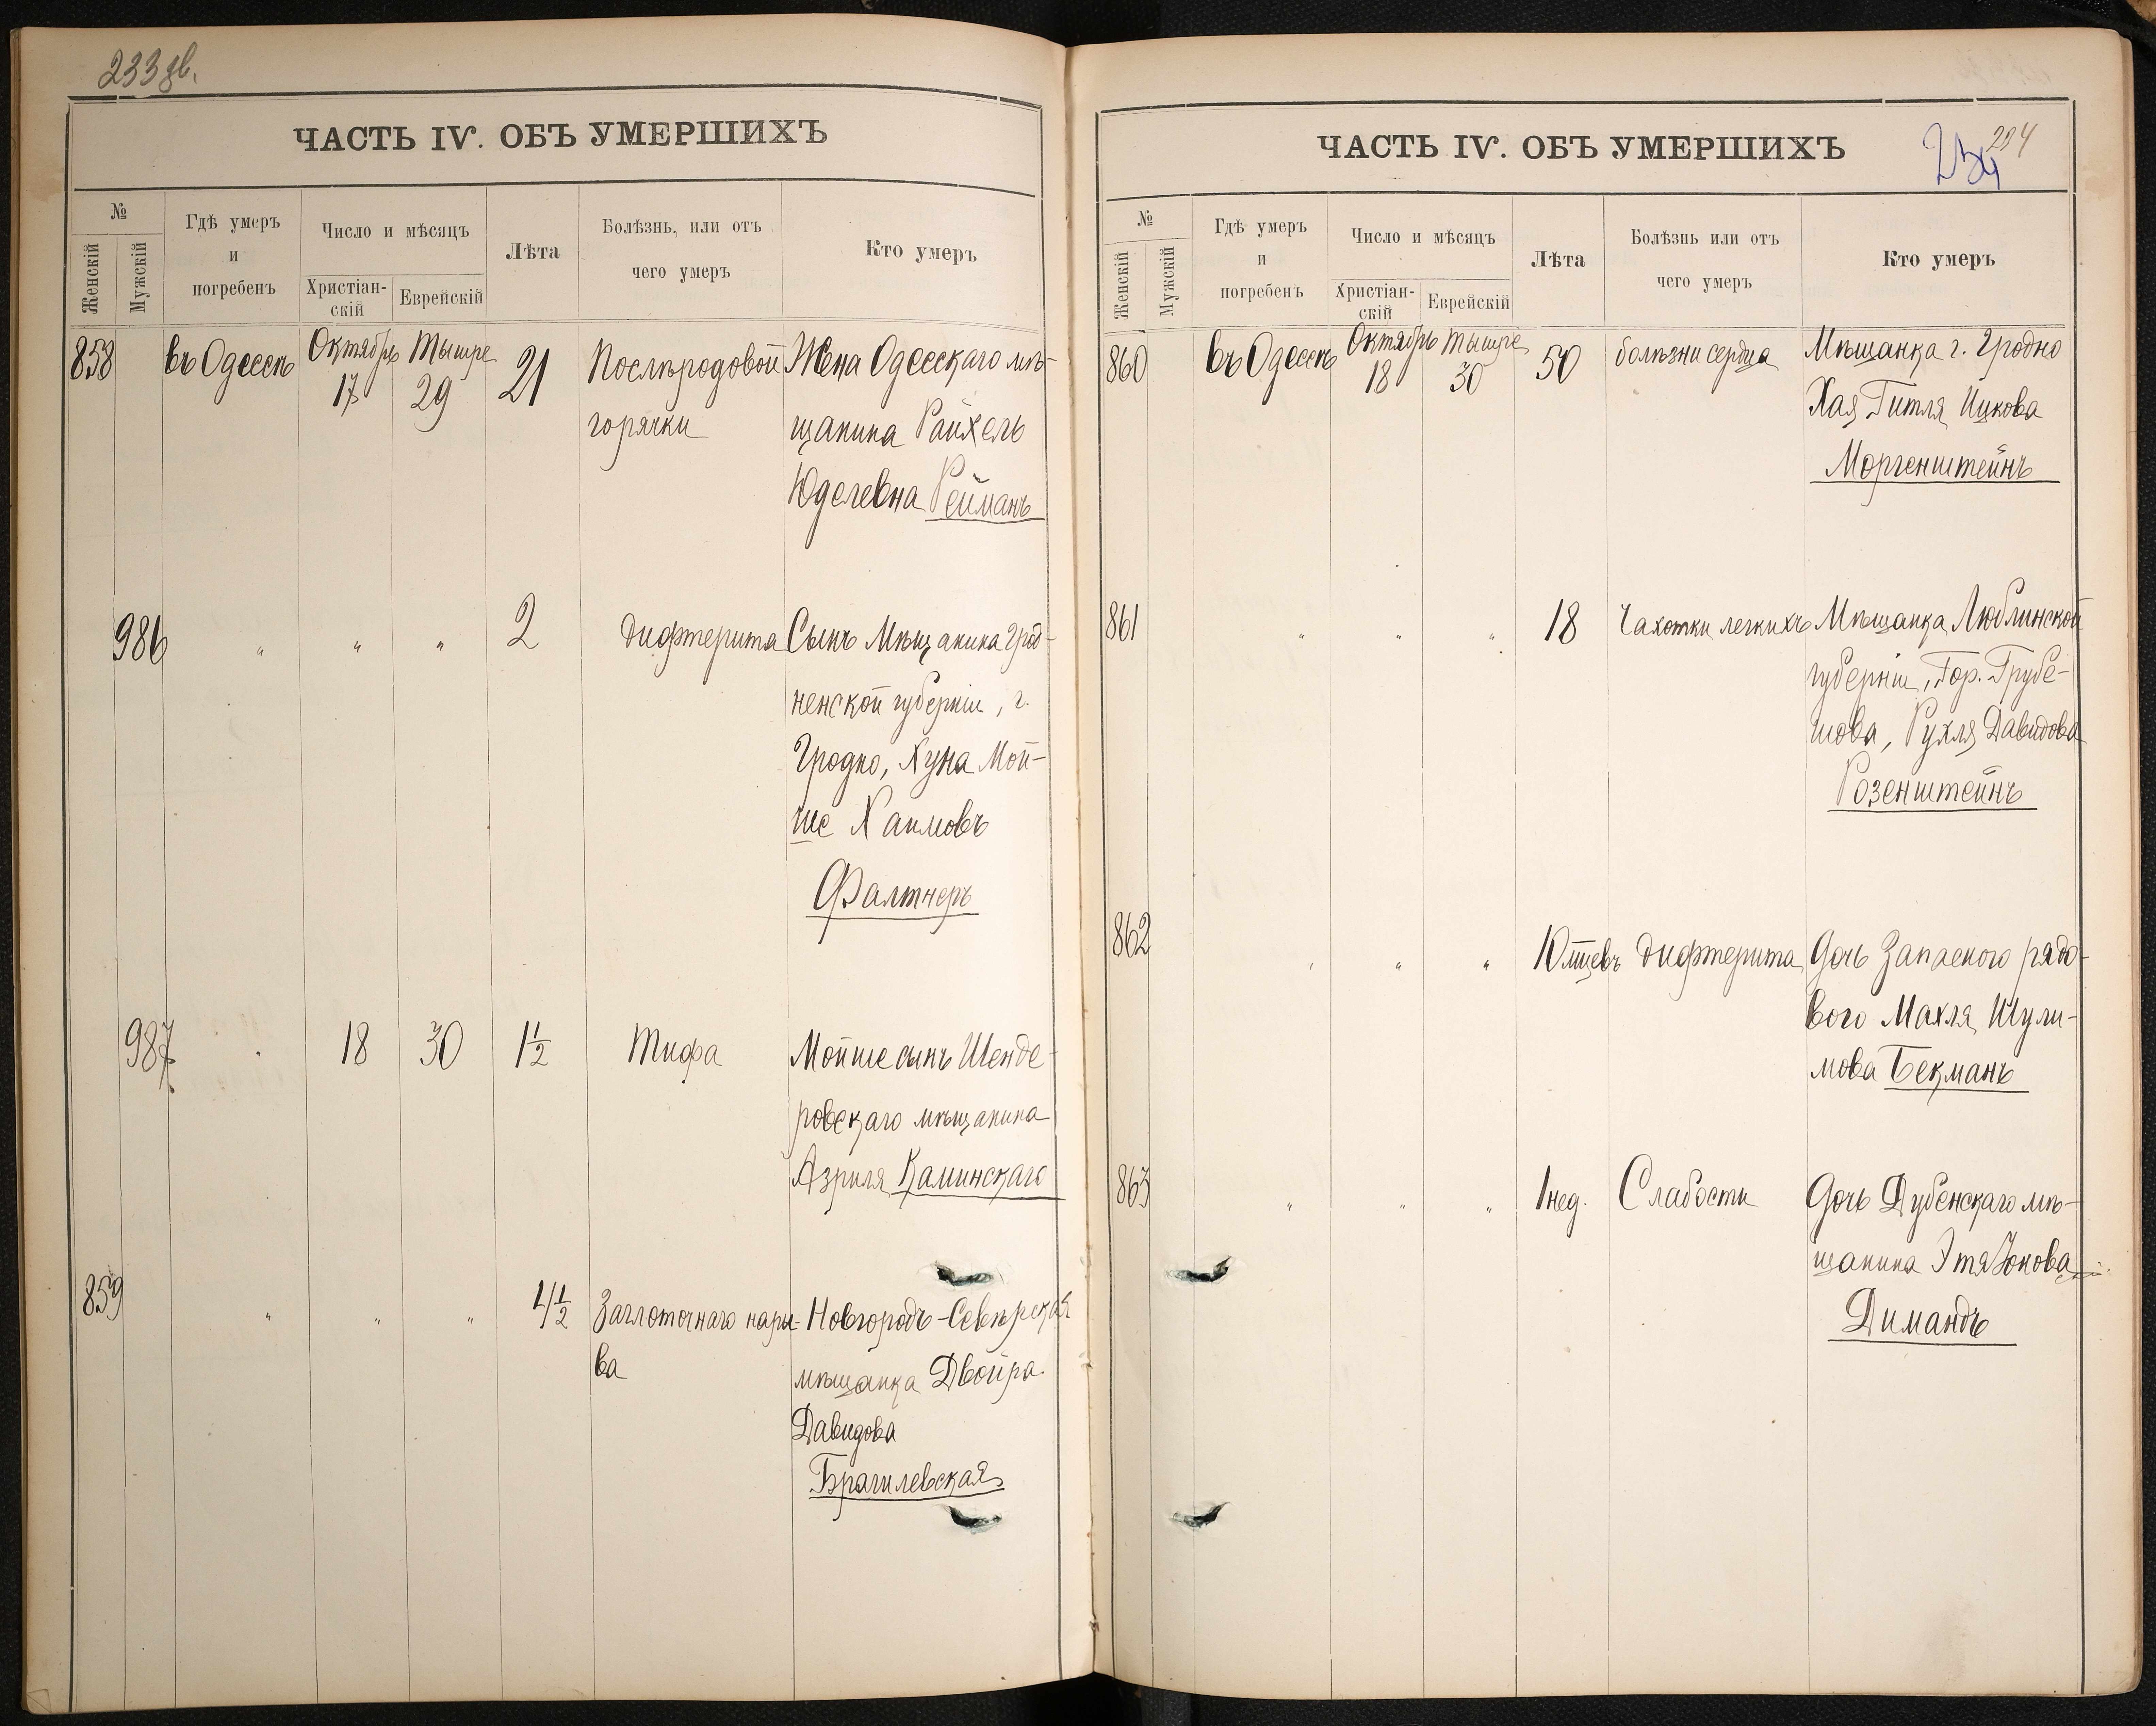 233 зв.
ЧАСТЬ IV. ОБЪ УМЕРШИХЪ
№
Женскій
Мужскій
Гдѣ умеръ
и
погребенъ
Число и мѣсяцъ
Христіан-
скій
Еврейскій
Лѣта
Болѣзнь, или отъ
чего умеръ
Кто умеръ
858 въ Одессѣ Октябрь 17 Тышре 29 21 Послѣродовой Жена Одесскаго мѣ-
горячки щанина Райхель
Юделевна Рейманъ
986 " " " 2 Дифтерита Сынъ Мѣщанина Грод-
ненской губерніи, г.
Гродно, Хуна Мой-
ше Хаимовъ
Фалтнеръ
987 " 18 30 1½ Тифа Мойше сынъ Шенде-
ровскаго мѣщанина
Азриля Каминскаго
859 " " " 1½ Заглоточнаго нары- Новгородъ-Сѣверская
ва мѣщанка Двойра
Давидова
Брагилевская
ЧАСТЬ IV. ОБЪ УМЕРШИХЪ
234
234
№
Женскій
Мужскій
Гдѣ умеръ
и
погребенъ
Число и мѣсяцъ
Христіан-
скій
Еврейскій
Лѣта
Болѣзнь или отъ
чего умеръ
Кто умеръ
860 въ Одессѣ Октябрь 18 Тышре 30 50 болѣзни сердца Мѣщанка г. Гродно
Хая Гитля Ицкова
Моргенштейнъ
861 " " " 18 Чахотки легкихъ Мѣщанка Люблинской
губерніи, Гор. Грубе-
шова, Рухля Давидова
Розенштейнъ
862 " " " 10 мцевъ Дифтерита Дочь Запасного рядо-
вого Махля Шули-
мова Бекманъ
863 " " " 1 нед. Слабости Дочь Дубенскаго мѣ-
щанина Этя
Димандъ